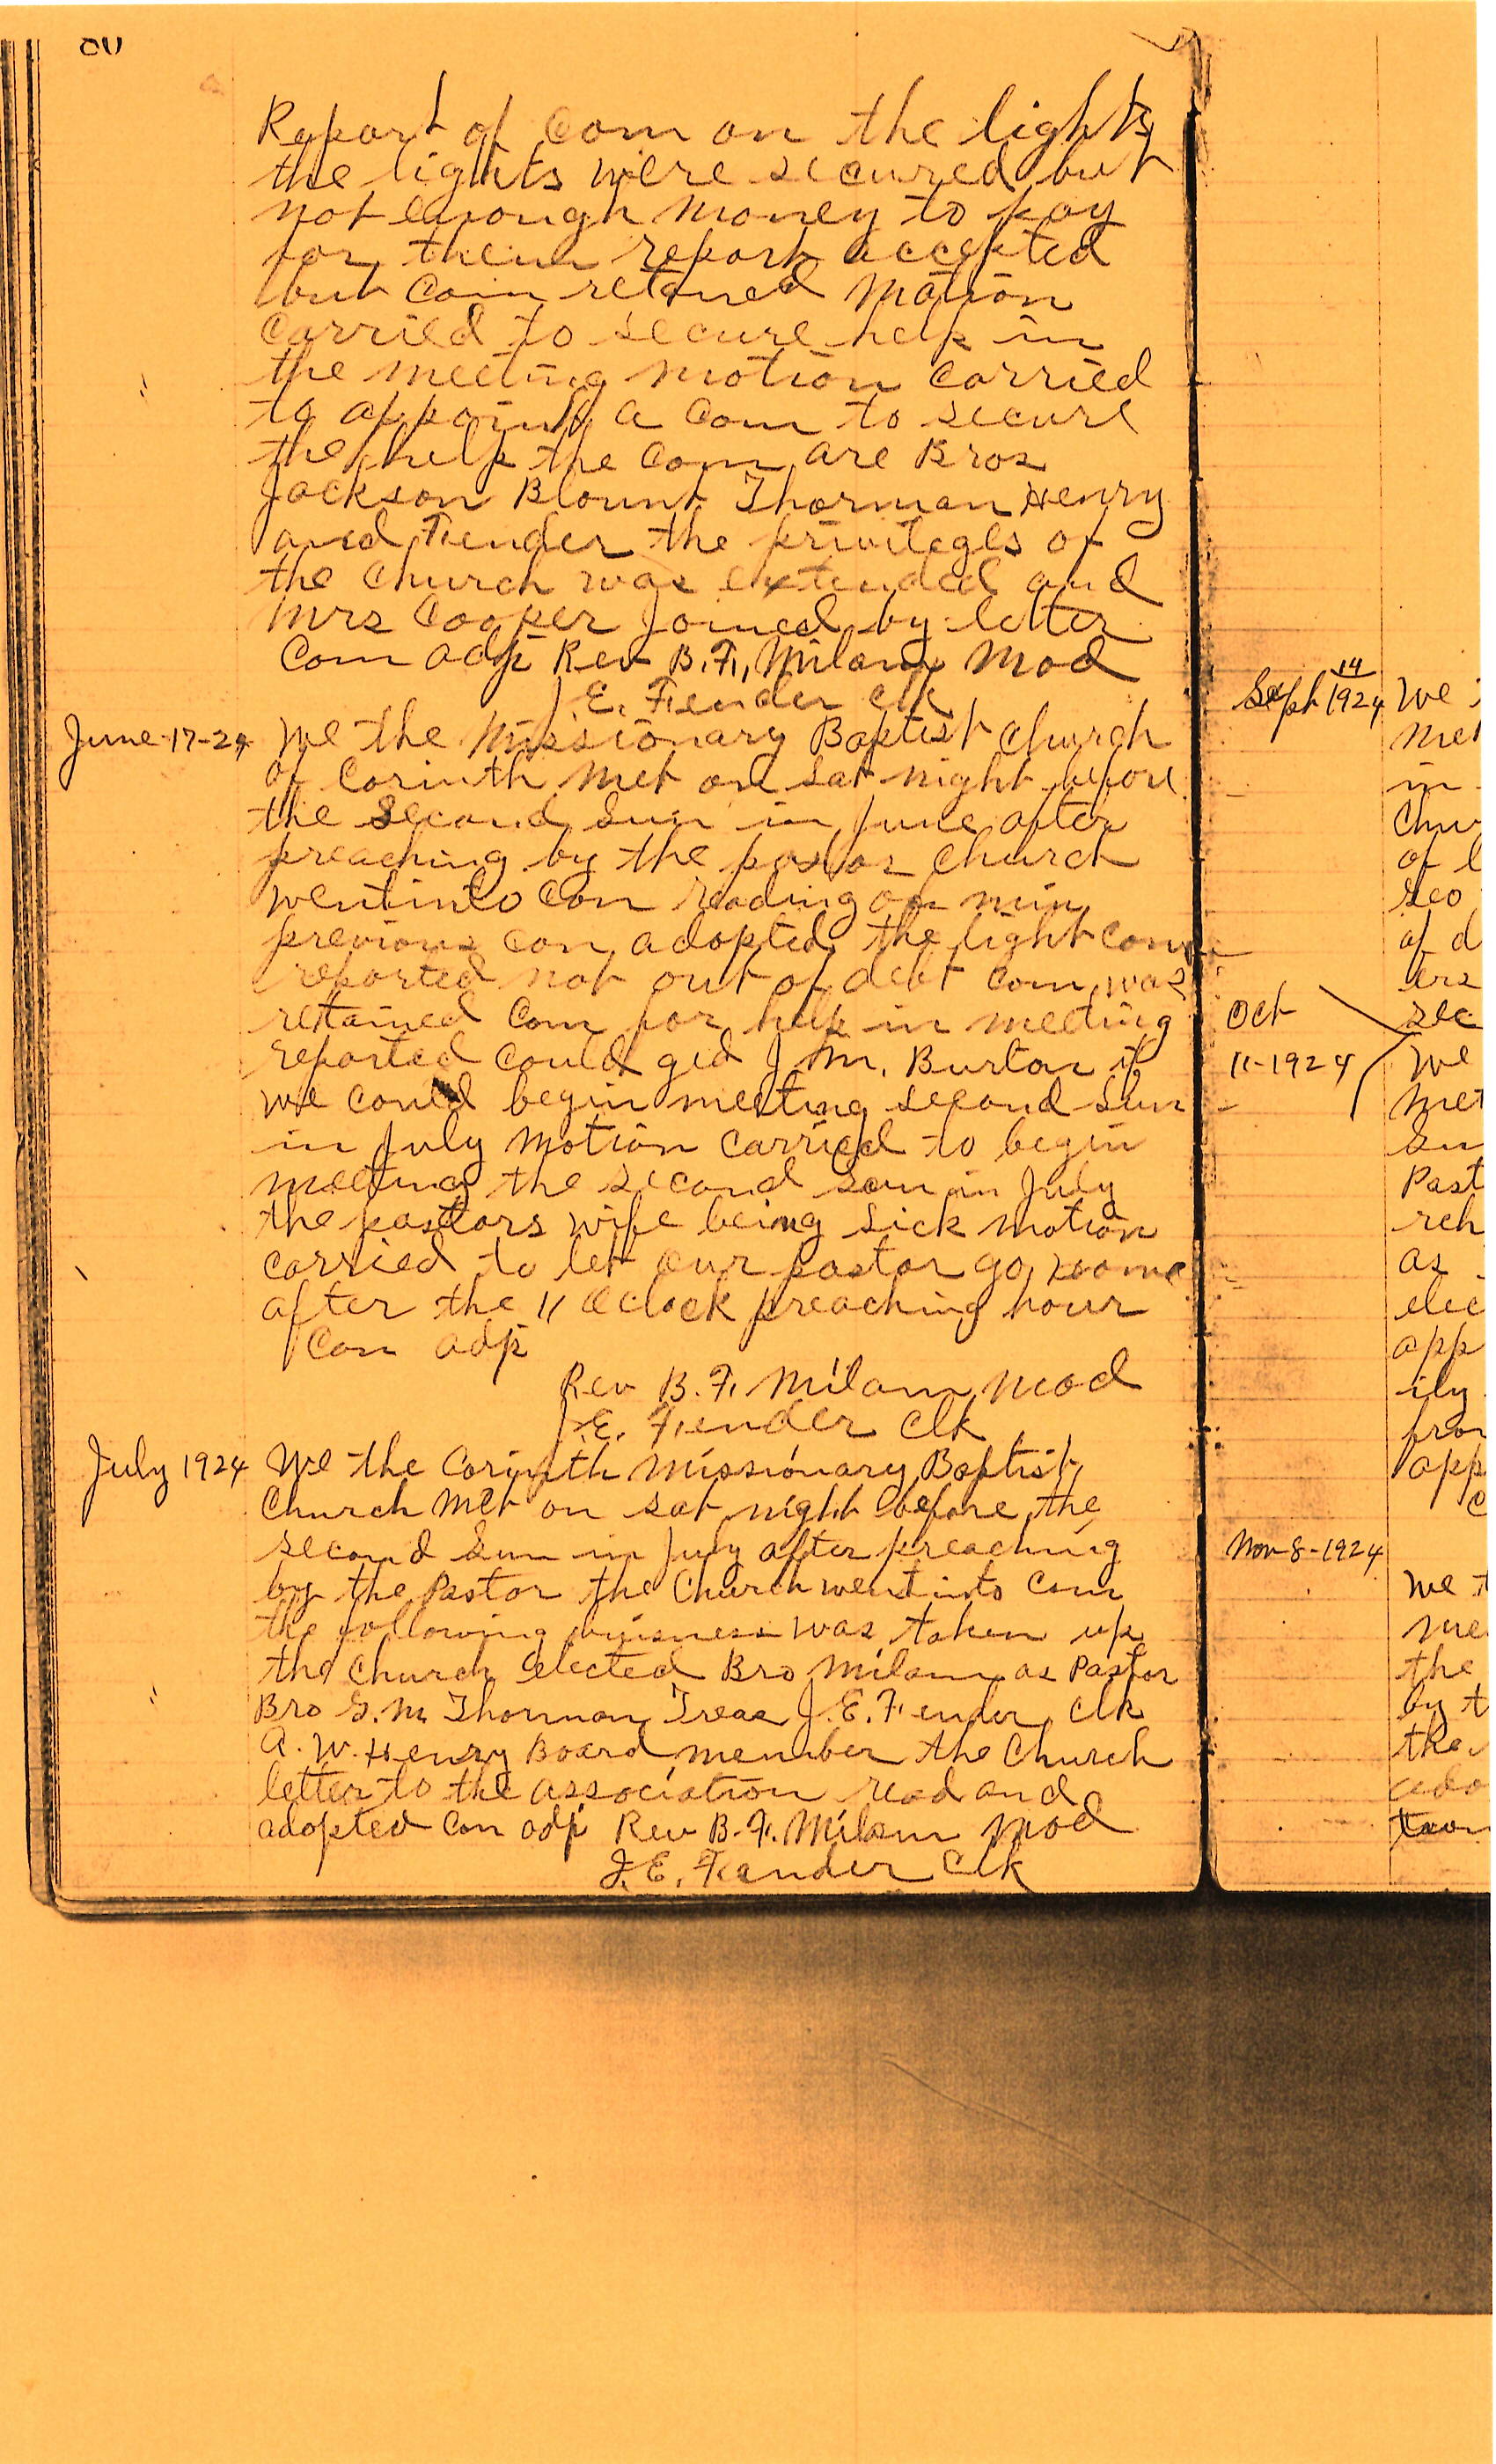 Report of Com on the lights
the lights were secured but
not enough money to pay
for them report accepted
but Com retaned Motion
Carried to secure help in
the meeting motion Carried
to appoint a Com to secure
the help the Com are Bros
Jackson Blount Thorman Henry
and Fender the privileges of
the Church was extended and
Mrs Cooper Joined by letter
Com adj Rev B. F. Milam Mod
J. E. Fender Clk
June-17-24 We the Missionary Baptist Church
of Corinth Met on Sat night before
the Second Sun in June after
preaching by the pastor Church
went into Con reading of min
previous Con adopted the light Com
reported not out of debt Com was
retained Com for help in meeting
reported Could ged J. M. Burton if
we Could begin meeting second Sun
in July Motion Carried to begin
meeting the second Sun in July
the pastors wife being Sick motion
Carried to let our pastor go home
after the 11 Oclock preaching hour
Con adj
Rev B. F. Milam Mod
J. E. Fender Clk
July 1924 We the Corinth Missionary Baptist
Church Met on sat night before the
second Sun in July after preaching
by the Pastor the Church went into Con
the following buisness was taken up
the Church elected Bro Milam as Pastor
Bro G. M Thorman Treas J. E. Fender Clk
A. W. Henry Board member the Church
letter to the association read and
adopted Con adj Rev B. F. Milam Mod
J. E. Fender Clk
Seph 14 1924 We
Met
in
Chu
of l
seo
of d
ers
sec
Oct
11-1924 We
Met
Sun
Past
rch
as
elec
app
ily
from
app
C
Nov-8-1924
We t
me
the
by t
the
ado